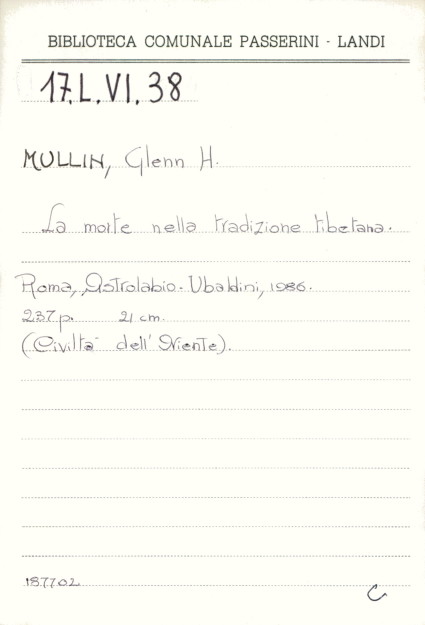 BIBLIOTECA COMUNALE PASSERINI - LANDI
17.L.VI.38
MULLIN, Glenn H.
La morte nella tradizione tibetana.
Roma, Astrolabio-Ubaldini, 1986.
237 p. 21 cm.
(Civiltà dell'Oriente).
187702
C